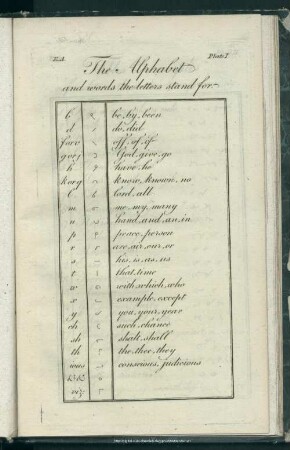 Plate 1
The Alphabet
and words the letters stand for
b be, by, been
d do, did
f or v off, of, if
g or j God, give, go
h have, he
k or q know, known, no
l lord, all
m me, my, many
n hand, and, an, in
p peace, person
r are, air, our, or
s his, is, as, us
t that, time
w with, which, who
x example, except
y you, your, year
ch such, chance
sh shalt, shall
th the, thee, they
ious conscious, judicious
viz